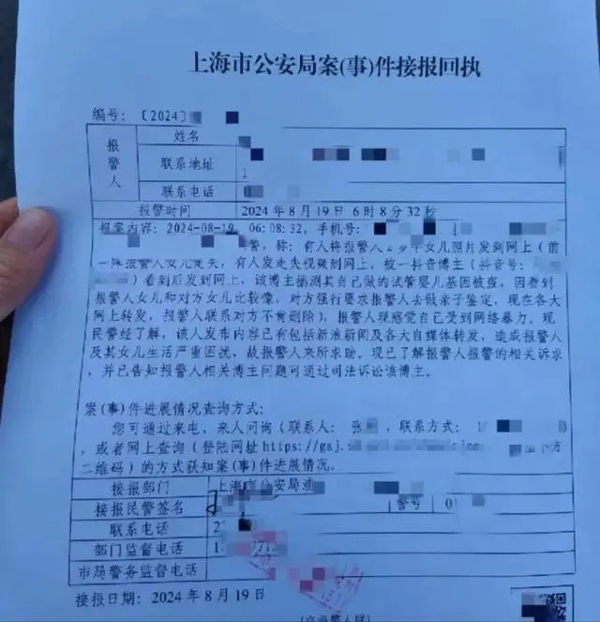 上海市公安局案(事)件接报回执
编号:〔2024〕
报警人
姓名
联系地址
1
联系电话
报警时间 2024年8月19日6时8分32秒
报案内容: 2024-08-19 06:08:32,手机号:
警,称:有人将报警人 女儿照片发到网上(前
一阵报警人女儿走失,有人发走失视频到网上,被一抖音博主(抖音号:
)看到后发到网上,该博主揣测其自己做的试管婴儿基因被盗,因看到
报警人女儿和对方女儿比较像,对方强行要求报警人去做亲子鉴定,现在各大
网上转发,报警人联系对方不肯删除),报警人现感觉自己受到网络暴力。现
民警经了解,该人发布内容已有包括新浪新闻及各大自媒体转发,造成报警人
及其女儿生活严重困扰,故报警人来所求助。现已了解报警人报警的相关诉求
,并已告知报警人相关博主问题可通过司法诉讼该博主。
案(事)件进展情况查询方式:
您可通过来电、来人问询(联系人:张 ,联系方式:1
,或者网上查询(登陆网址https://gaj.
二维码)的方式获知案(事)件进展情况。
接报部门 上海市公安局浦
接报民警签名 警号 0
联系电话 2
部门监督电话 1
市局警务监督电话
接报日期:2024年8月19日